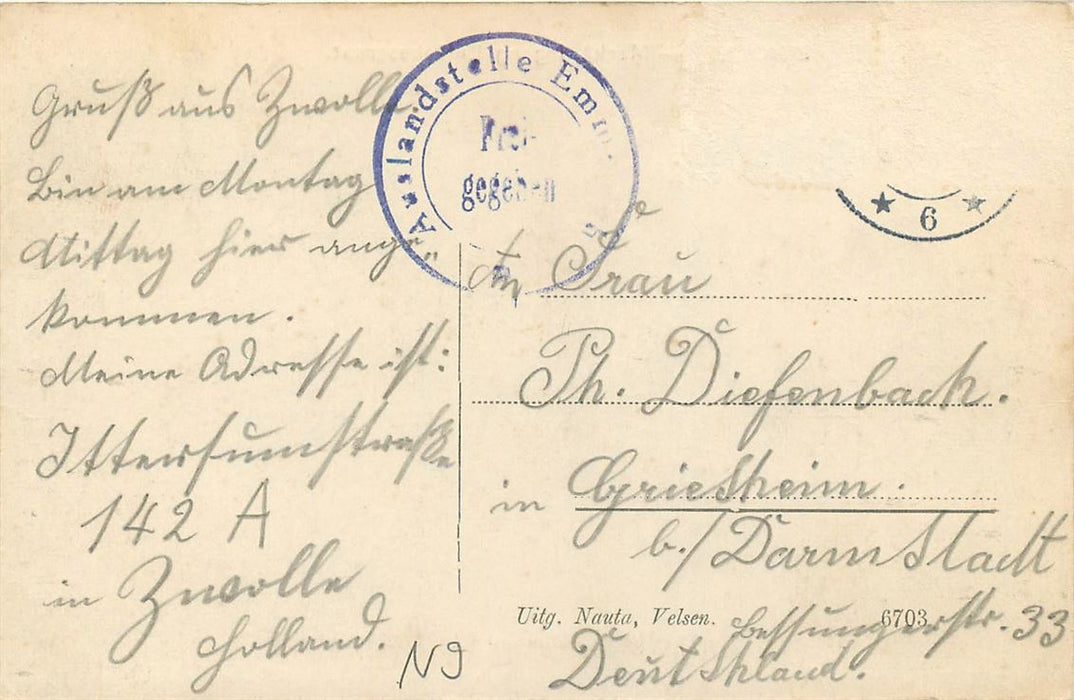 Gruß aus Zwolle
Bin am Montag
Mittag hier ange„
kommen.
Meine Adresse ist:
Ittersumstraße
142 A
in Zwolle
Holland.
Auslandstelle Emm
Frei-
gegeben
6
An Frau
Ph. Diefenbach.
in Griesheim.
b./Darmstadt
Bessungerstr. 33
Deutschland.
Uitg. Nauta, Velsen. 6703